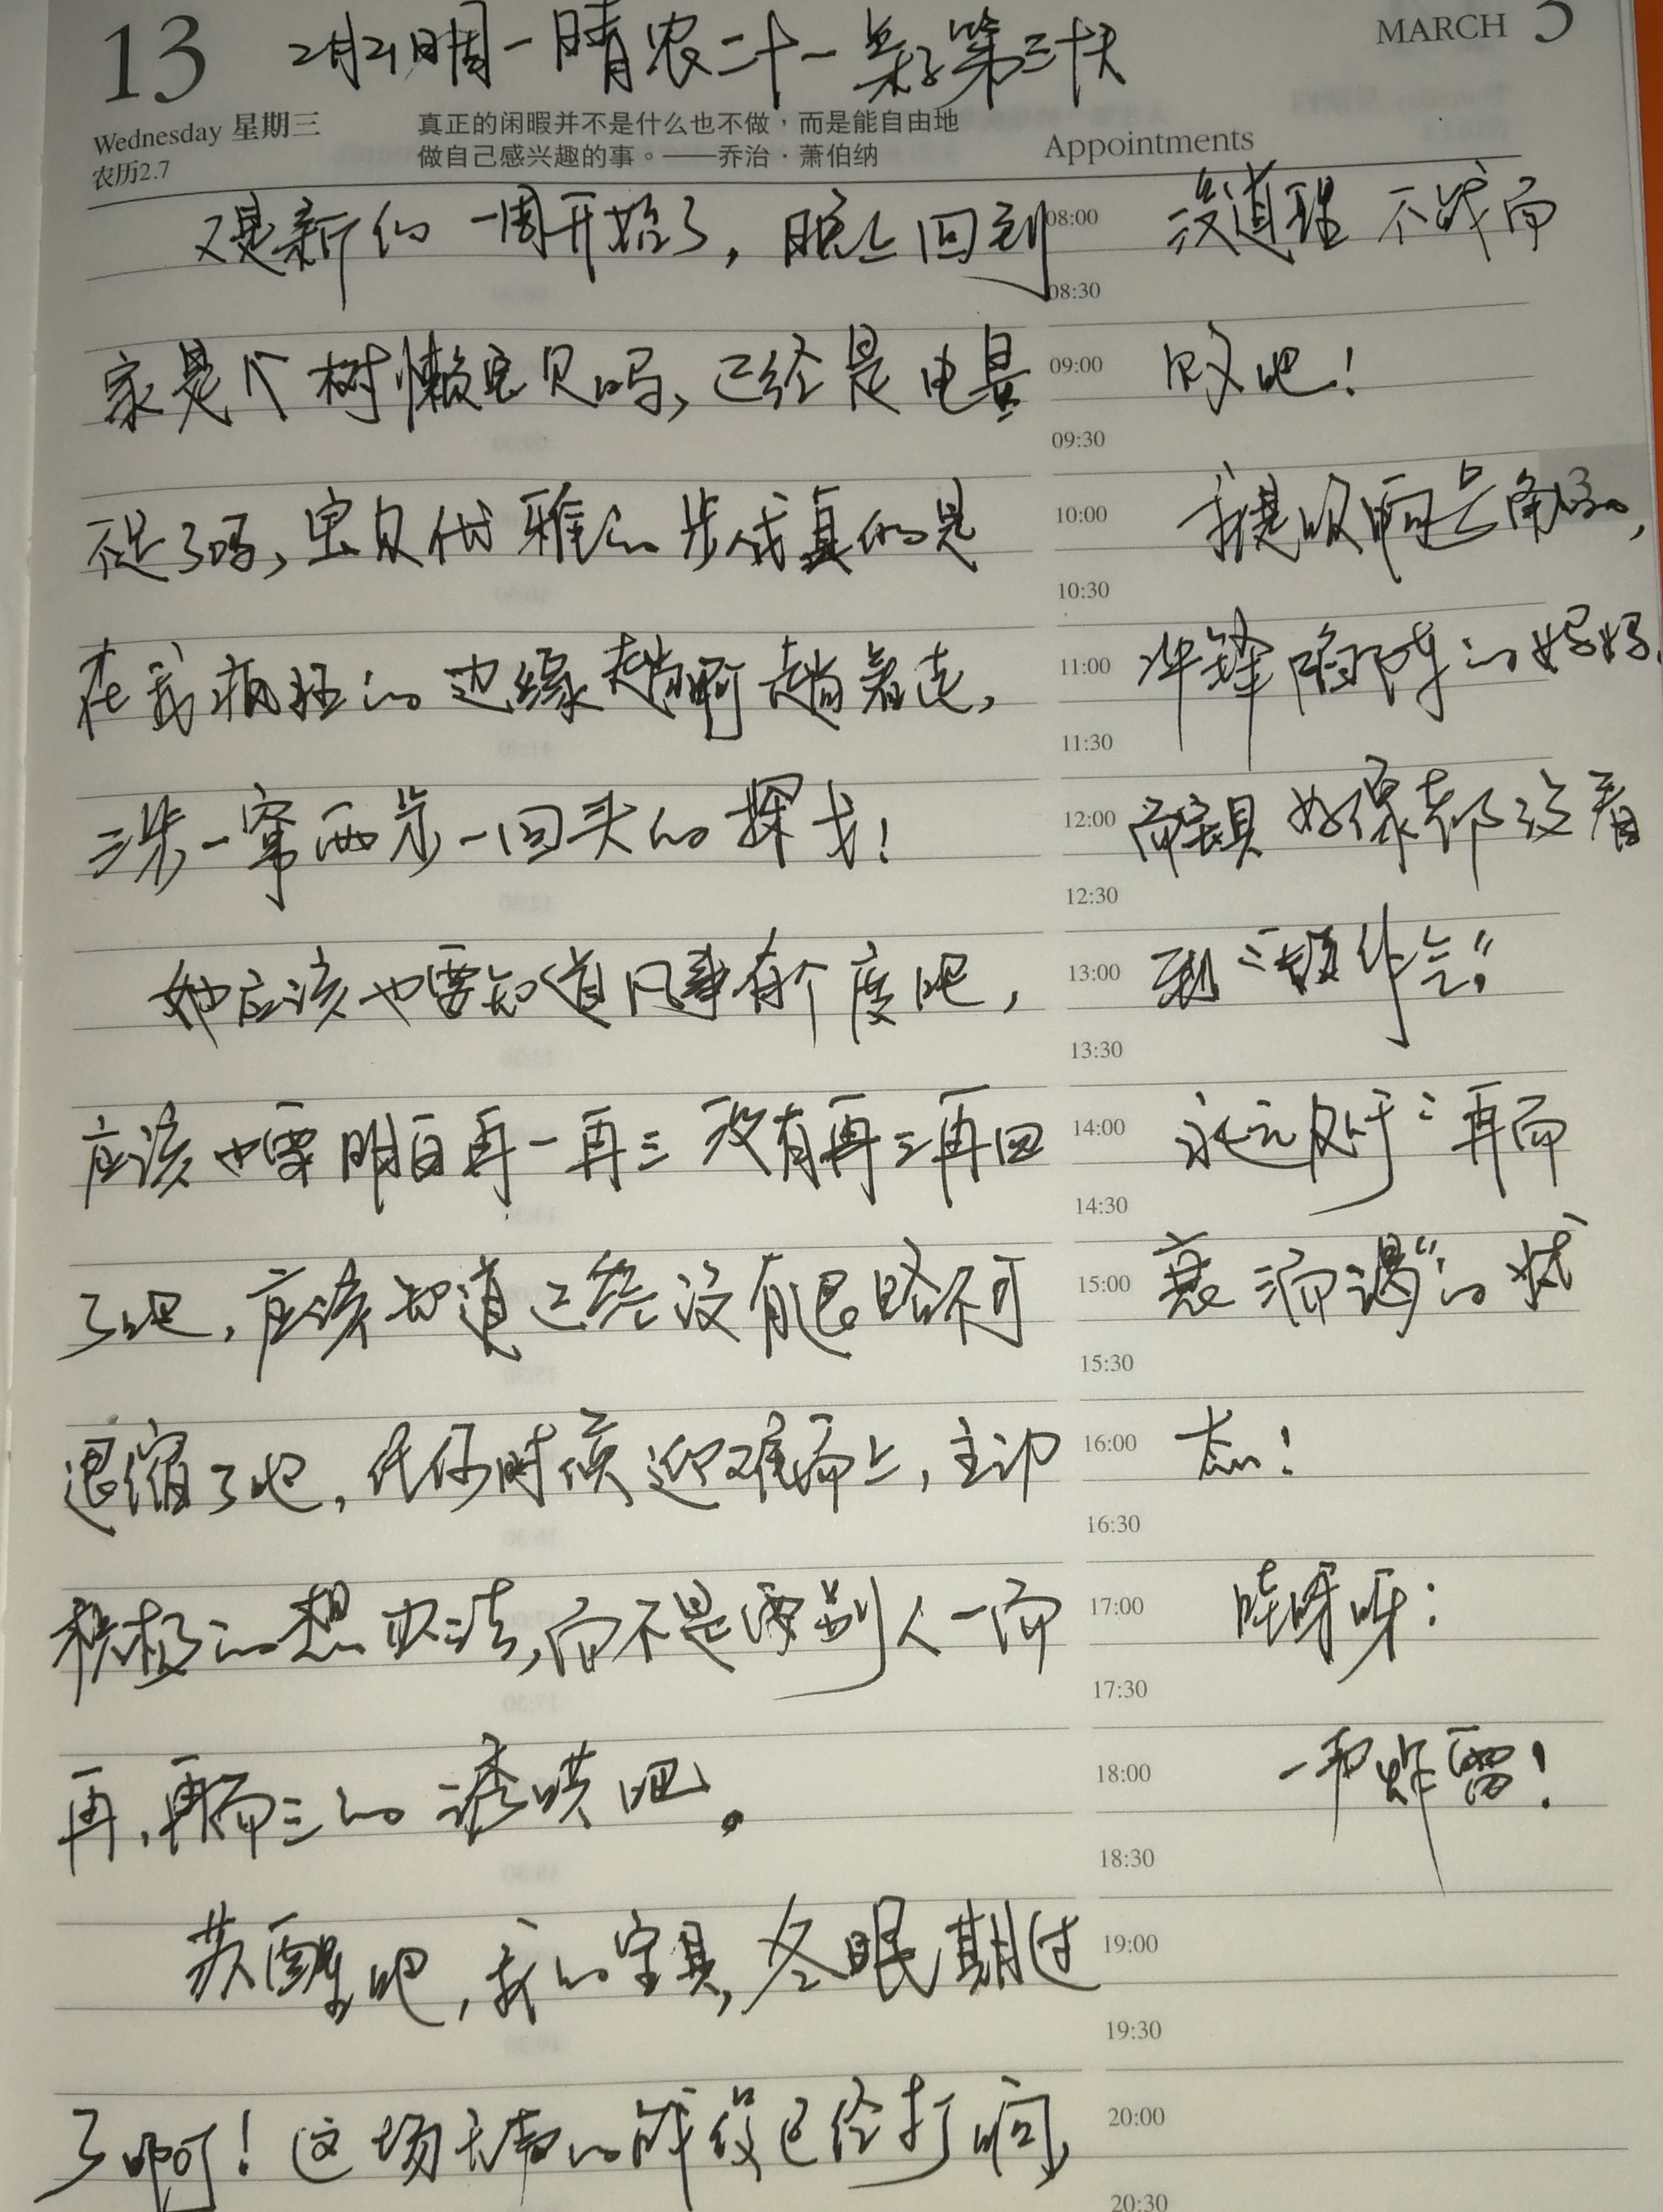 13
2月21日周一晴农二十一 第三十天
MARCH 3
Wednesday 星期三
农历2.7
真正的闲暇并不是什么也不做,而是能自由地
做自己感兴趣的事。——乔治·萧伯纳
Appointments
又是新的一周开始了,晚上回到
家是个树懒宝贝吗,已经是电量
不足了吗,宝贝优雅的步伐真的是
在我疯狂的边缘趟啊趟着走,
三步一窜两步一回头的探戈!
她应该也要知道凡事有个度吧,
应该也要明白再一再三没有再三再四
了吧,应该知道已经没有退路不可
退缩了吧,任何时候迎难而上,主动
积极的想办法,而不是要别人一而
再,再而三的诱哄吧。
苏醒吧,我的宝贝,冬眠期过
了啊!这场无声的战役已经打响,
08:00
08:30
09:00
09:30
10:00
10:30
11:00
11:30
12:00
12:30
13:00
13:30
14:00
14:30
15:00
15:30
16:00
16:30
17:00
17:30
18:00
18:30
19:00
19:30
20:00
20:30
没道理 不战而
败吧!
3
我是吹响号角的,
冲锋陷阵的好妈妈
而宝贝好像都没看
到“一鼓作气”
永远处于“再而
衰三而竭”的状
态!
哇呀呀:
一声炸雷!